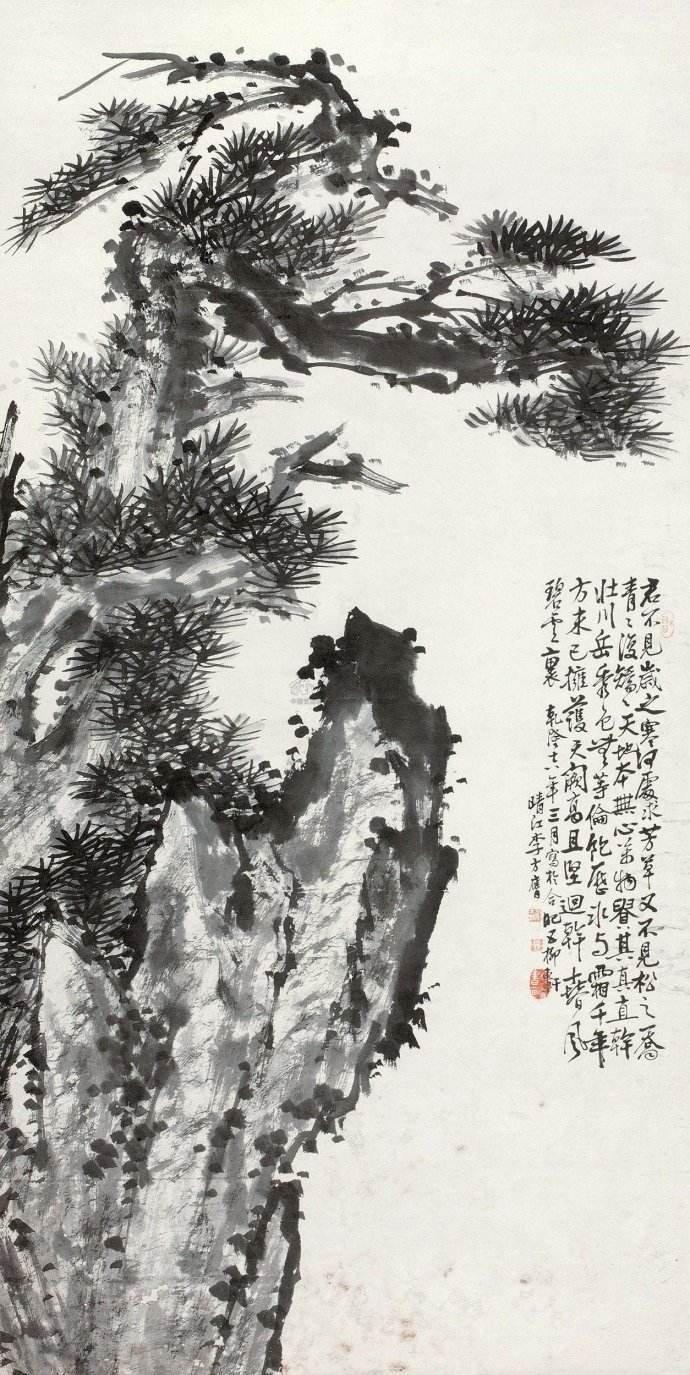 君不見歲之寒何處求芳草又不見松之喬
青々復矯々天地本無心萬物貴其真直幹
壯川岳秀色無等倫飽歷冰與霜千年
方未已擁護天闕高且堅迴幹春風
碧雲裏 乾隆十八年三月寫於合肥五柳軒
晴江李方膺